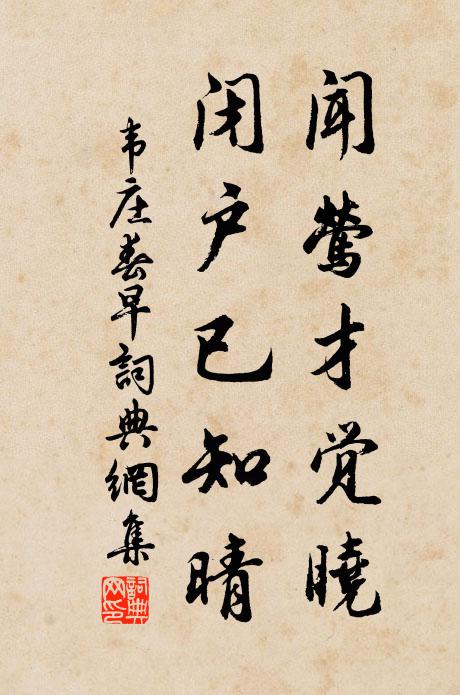 闻莺才觉曉
闭户已知晴
韦庄春早詞典網集
詞典網印